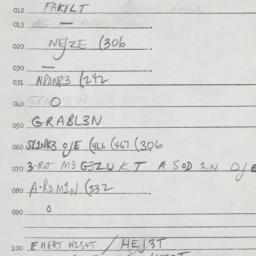 012 FAKILT
013 —
020 NEJZE (306
030 —
031 NPDNP3 (242
040 O
050 GRABL3N
060 SLINK3 OJE (466 (467 (306
070 3-RT M3 G3ZUKT A SOD IN OJE
080 A-ROMIN (332
090 O
100 EHERT NISHT / HEJ3T